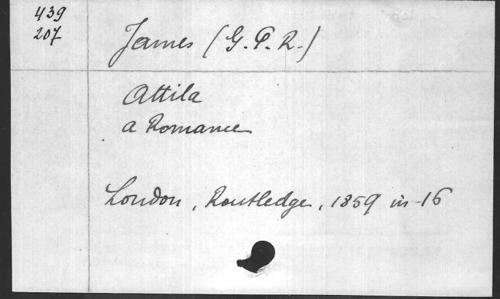 439
207
James (G. P. R.)
Attila
a Romance
London, Routledge, 1859 in-16